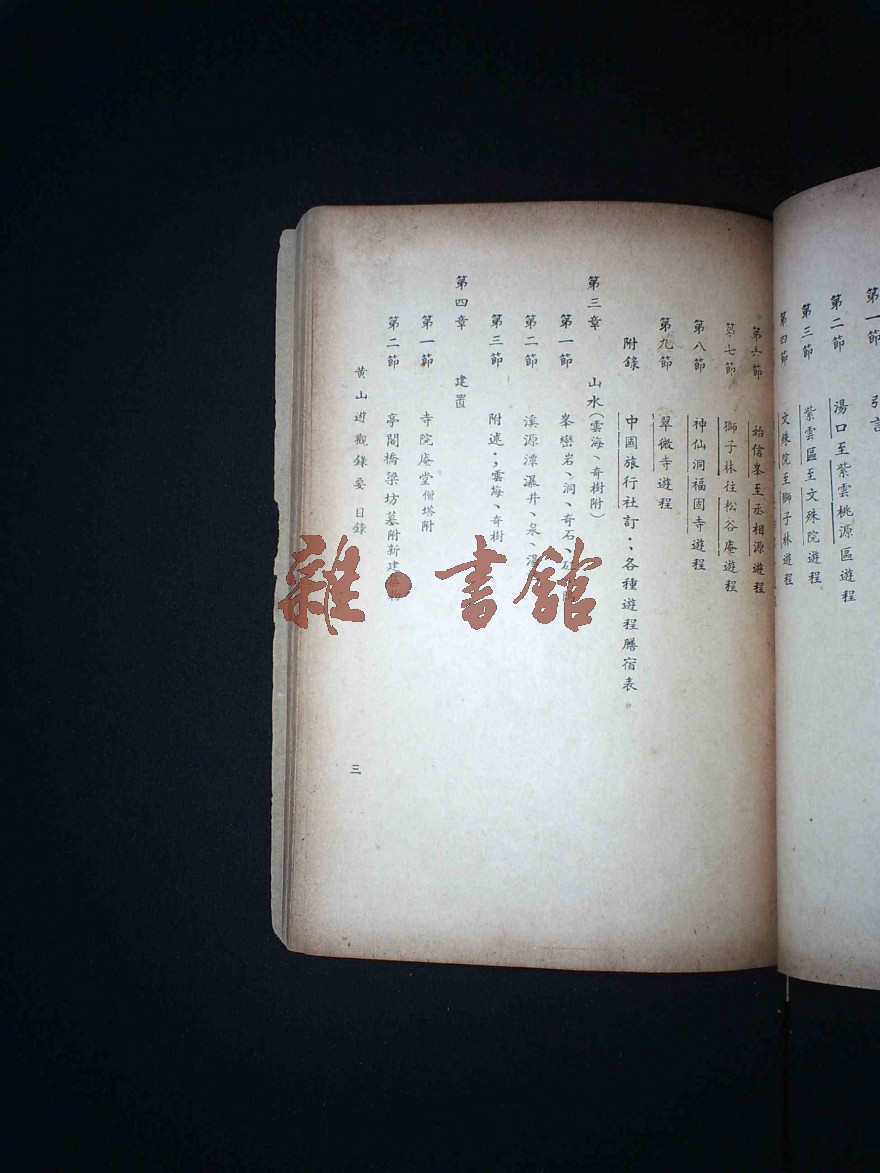 第一節
第二節 湯口至紫雲桃源區遊程
第三節 紫雲區至文殊院遊程
第四節 文殊院至獅子林遊程
第六節 始信峯至丞相源遊程
第七節 獅子林往松谷庵遊程
第八節 神仙洞福固寺遊程
第九節 翠微寺遊程
附錄 中國旅行社訂：各種遊程膳宿表。
第三章 山水(雲海、奇樹附)
第一節 峯巒岩、洞、奇石、
第二節 溪源潭瀑井、泉、
第三節 附述：雲海、奇樹
第四章 建置
第一節 寺院庵堂僧塔附
第二節 亭閣橋梁坊墓附新建
黃山遊觀錄要 目錄
三
雜·書館